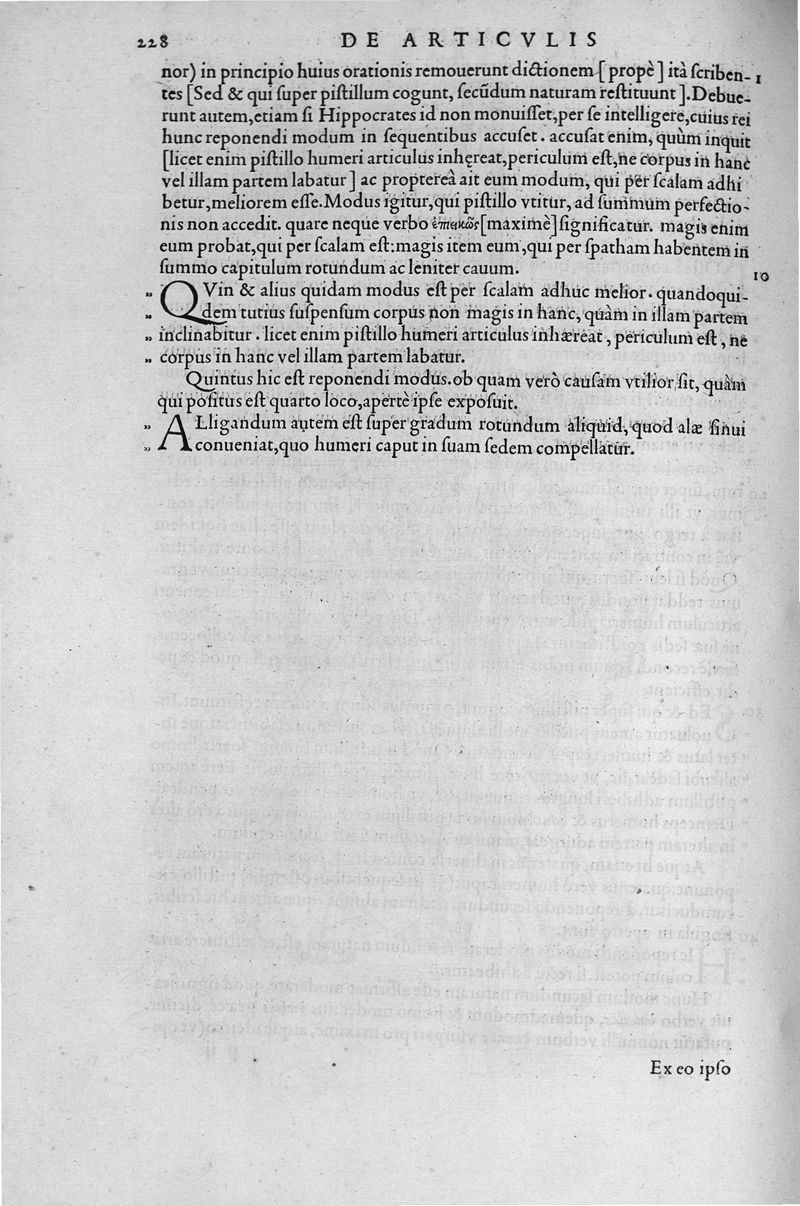 228 DE ARTICVLIS
nor) in principio huius orationis remouerunt dictionem [propè] ità ſcriben- 1
tes [Sed & qui ſuper piſtillum cogunt, ſecũdum naturam reſtituunt]. Debue-
runt autem, etiam ſi Hippocrates id non monuiſſet, per ſe intelligere, cuius rei
hunc reponendi modum in ſequentibus accuſet. accuſat enim, quùm inquit
[licet enim piſtillo humeri articulus inhęreat, periculum eſt, ne corpus in hanc
vel illam partem labatur] ac proptereà ait eum modum, qui per ſcalam adhi
betur, meliorem eſſe. Modus igitur, qui piſtillo vtitur, ad ſummum perfectio-
nis non accedit. quare neque verbo ἐπιεικῶς [maximè] ſignificatur. magis enim
eum probat, qui per ſcalam eſt: magis item eum, qui per ſpatham habentem in
ſummo capitulum rotundum ac leniter cauum. 10
„ QVin & alius quidam modus eſt per ſcalam adhuc melior. quandoqui-
„ dem tutius ſuſpenſum corpus non magis in hanc, quàm in illam partem
„ inclinabitur. licet enim piſtillo humeri articulus inhæreat, periculum eſt, ne
„ corpus in hanc vel illam partem labatur.
Quintus hic eſt reponendi modus. ob quam verò cauſam vtilior ſit, quàm
qui poſitus eſt quarto loco, apertè ipſe expoſuit.
„ ALligandum autem eſt ſuper gradum rotundum aliquid, quod alæ ſinui
„ conueniat, quo humeri caput in ſuam ſedem compellatur.
Ex eo ipſo